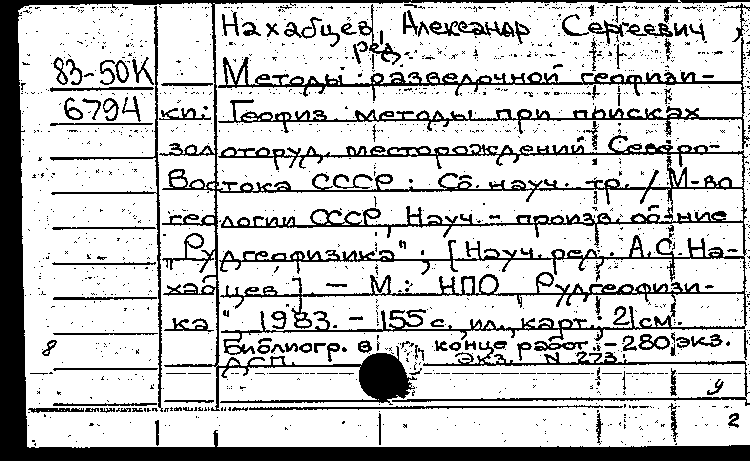 Нахабцев, Александр Сергеевич,
ред.
83-50К Методы разведочной геофизи-
6794 ки: Геофиз. методы при поисках
золоторуд. месторождений Северо-
Востока СССР: Сб. науч. тр. / М-во
геологии СССР, Науч.- произв. об-ние
"Рудгеофизика"; [Науч. ред. А.С. На-
хабцев]. - М.: НПО "Рудгеофизи-
ка", 1983. - 155 с., ил., карт., 21 см.
8 Библиогр. в конце работ - 280 экз.
ДСП. экз. N 273
у
2